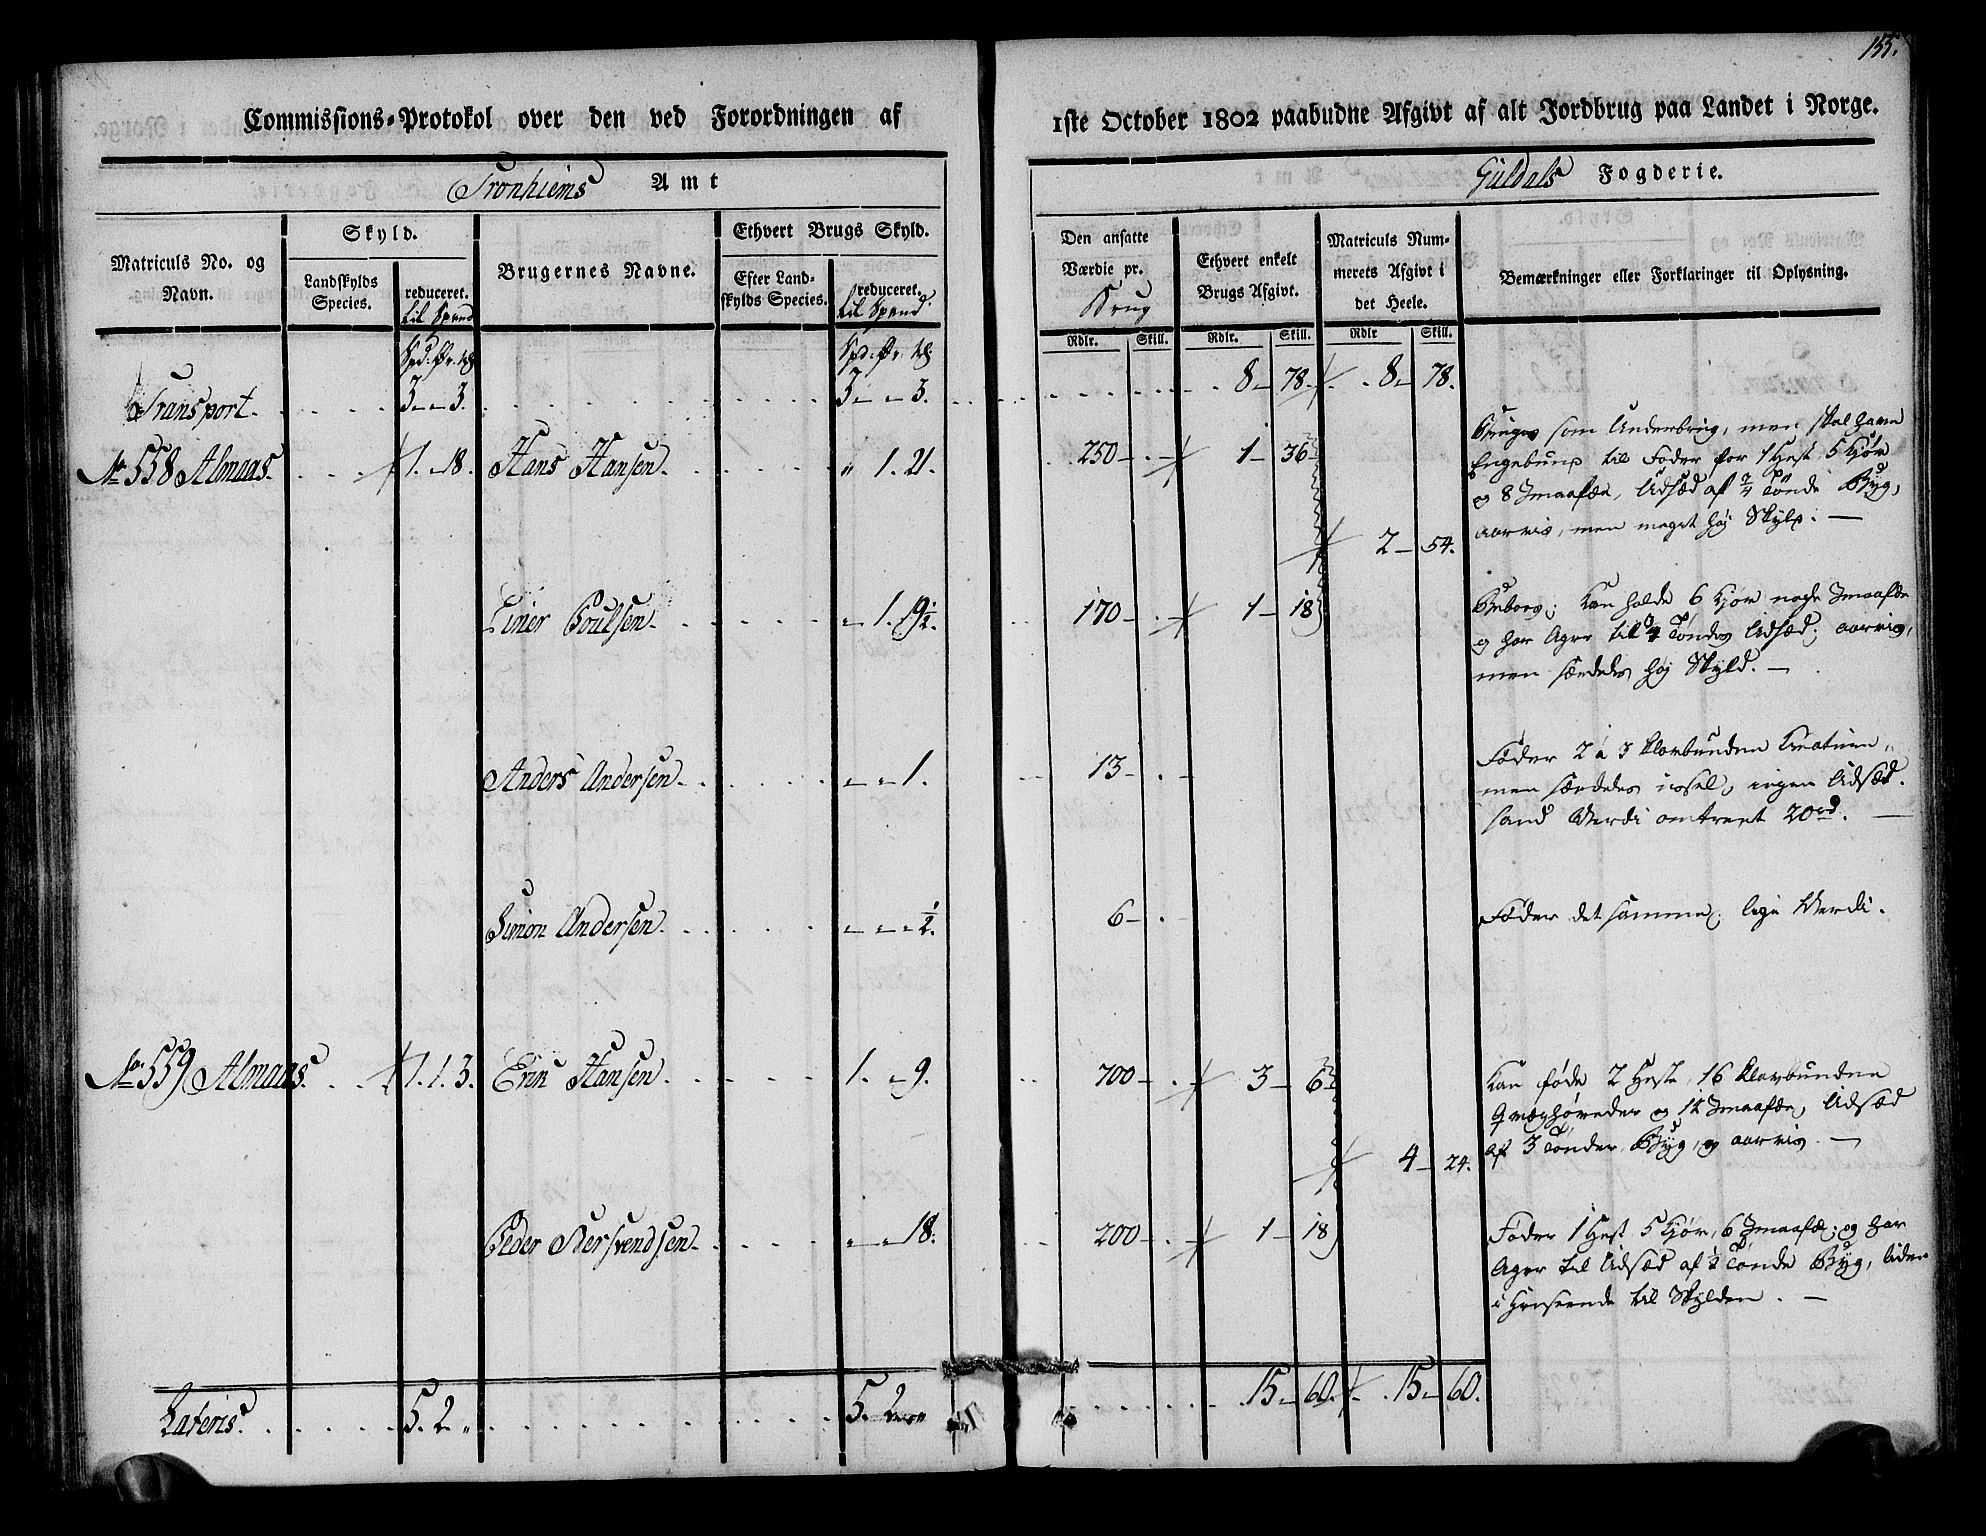 155.
Commissions-Protokol over den ved Forordningen af 1ste October 1802 paabudne Afgivt af alt Jordbrug paa Landet i Norge.
Tronhiems Amt
Guldals Fogderie.
Matriculs No. og Navn.
Skyld.
Landskylds Species.
reduceret. til Spand
Brugernes Navne.
Ethvert Brugs Skyld.
Efter Landskylds Species.
reduceret. til Spand
Den ansatte Værdie pr. Brug
Ethvert enkelt Brugs Afgivt.
Matriculs Nummerets Afgivt i det Heele.
Bemærkninger eller Forklaringer til Oplysning.
Rdlr. Skill. Rdlr. Skill. Rdlr Skill.
Transport. 3 „ 3. 3 „ 3. 8 – 78. 8 – 78.
No 558 Almaas. 1. „ 18. Hans Hansen. „ 1. 21. 250 – . 1 – 36
Bruges som Underbrug, men skal have
Engebund til Foder for 1 Hest 5 Kjør
og 8 Smaafæe, Udsæd af Tønde Byg,
aarvis, men meget høj Skyld. —
2 – 54.
Einer Poulsen. „ 1. 19½. 170 – . 1 – 18
Kan holde 6 Kjør nogle Smaafæe
og har Ager til Tønders Udsæd; aarvis,
men særdeles høj Skyld. —
Anders Andersen. „ „ 1. 13 – .
Føder 2 à 3 Klovbundne Creature,
men særdeles usel, ingen Udsæd.
sand Verdi omtrent 20rd. —
Simon Andersen. „ „ „ ½. 6 – .
Føder det samme, lige Verdi.
No 559 Almaas. 1. 1. 3. Eric Hansen. 1. „ 9. 700 – . 3 – 6
Kan føde 2 Heste, 16 Klovbundne
Qvæghøveder og 12 Smaafæe, Udsæd
af 3 Tønder Byg, og aarvis —
4 – 24.
Peder Bersvendsen. „ „ 18. 200 – . 1 – 18
Føder 1 Hest 5 Kjør, 6 Smaafæ; og har
Ager til Udsæd af Tønde Byg, lider
i Henseende til Skylden. —
Lateris. 5. 2 „ 5. 2 „ 15 – 60. 15 – 60.